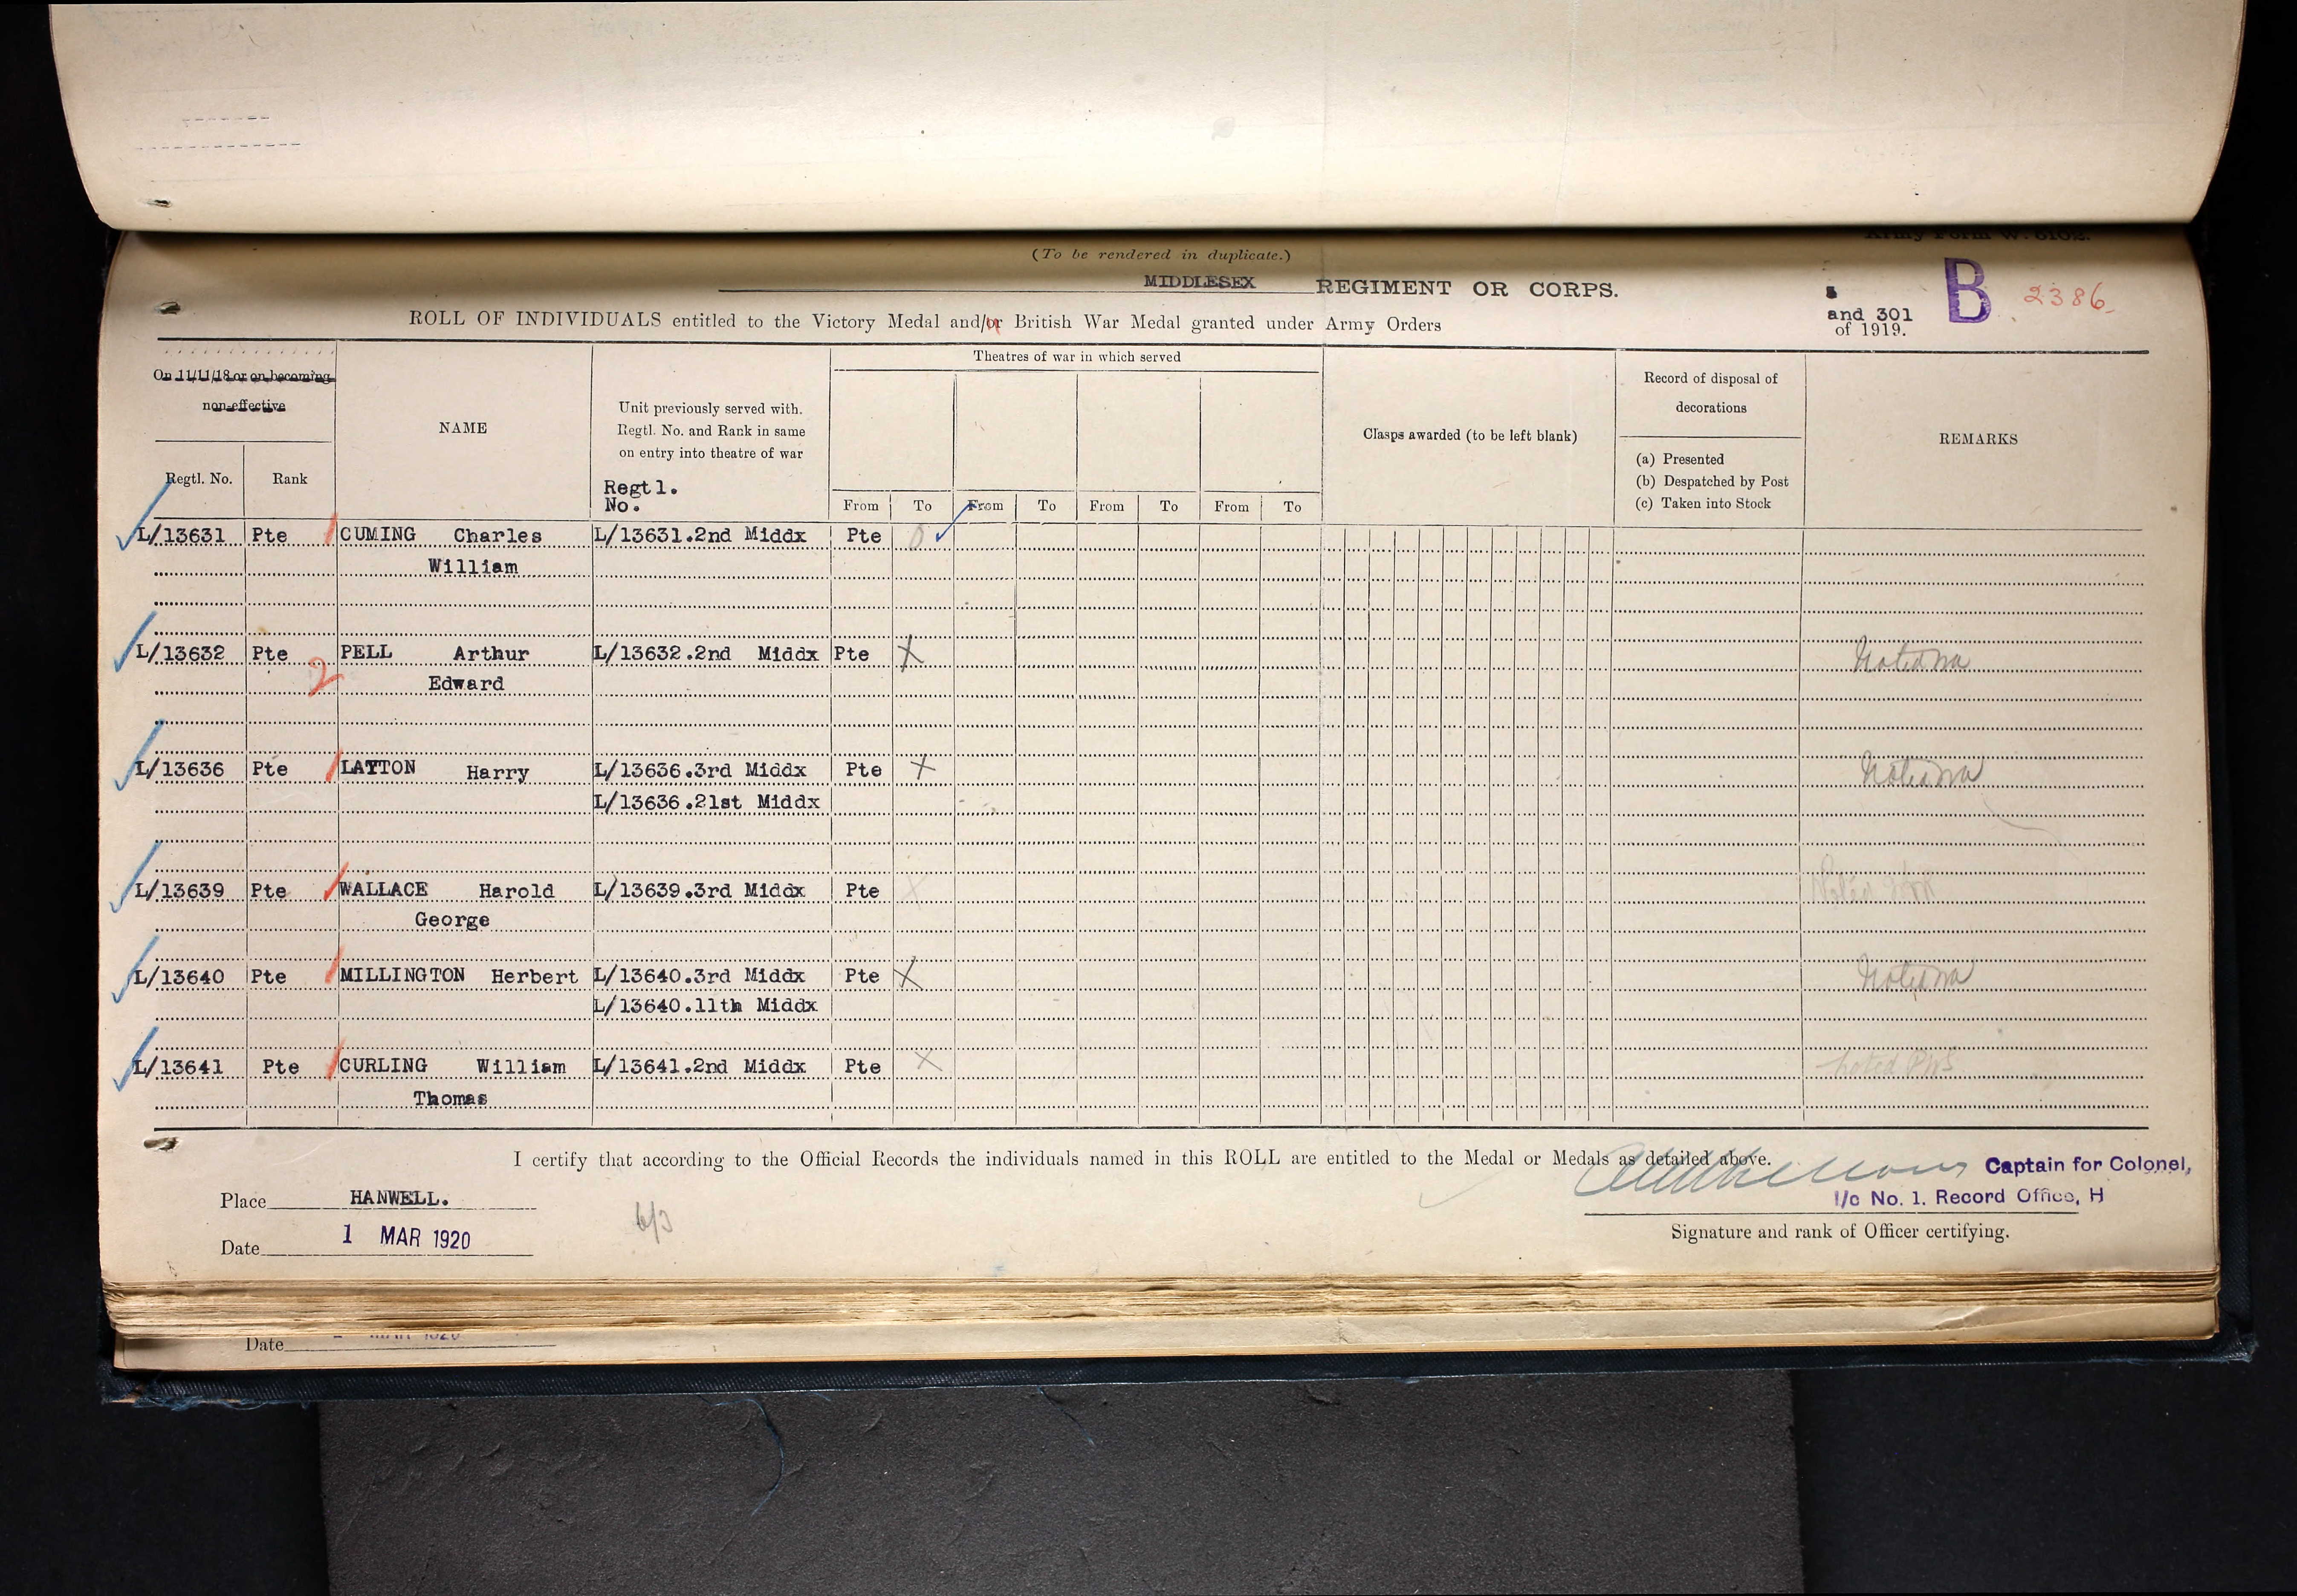 Army Form W. 5102.
(To be rendered in duplicate.)
MIDDLESEX REGIMENT OR CORPS.
B 2386.
ROLL OF INDIVIDUALS entitled to the Victory Medal and/or British War Medal granted under Army Orders
and 301
of 1919.
On 11/11/18 or on becoming
non-effective
Regtl. No. Rank
NAME
Unit previously served with.
Regtl. No. and Rank in same
on entry into theatre of war
Regtl.
No.
Theatres of war in which served
From To From To From To From To
Clasps awarded (to be left blank)
Record of disposal of
decorations
(a) Presented
(b) Despatched by Post
(c) Taken into Stock
REMARKS
L/13631 Pte CUMING Charles L/13631.2nd Middx Pte
William
L/13632 Pte 2 PELL Arthur L/13632.2nd Middx Pte X
Edward
L/13636 Pte LAYTON Harry L/13636.3rd Middx Pte X
L/13636.21st Middx
L/13639 Pte WALLACE Harold L/13639.3rd Middx Pte X Noted
George
L/13640 Pte MILLINGTON Herbert L/13640.3rd Middx Pte X
L/13640.11th Middx
L/13641 Pte CURLING William L/13641.2nd Middx Pte X noted
Thomas
I certify that according to the Official Records the individuals named in this ROLL are entitled to the Medal or Medals as detailed above.
Captain for Colonel,
I/c No. 1. Record Office, H
Signature and rank of Officer certifying.
Place HANWELL.
Date 1 MAR 1920
6/3
Date MAR 1920